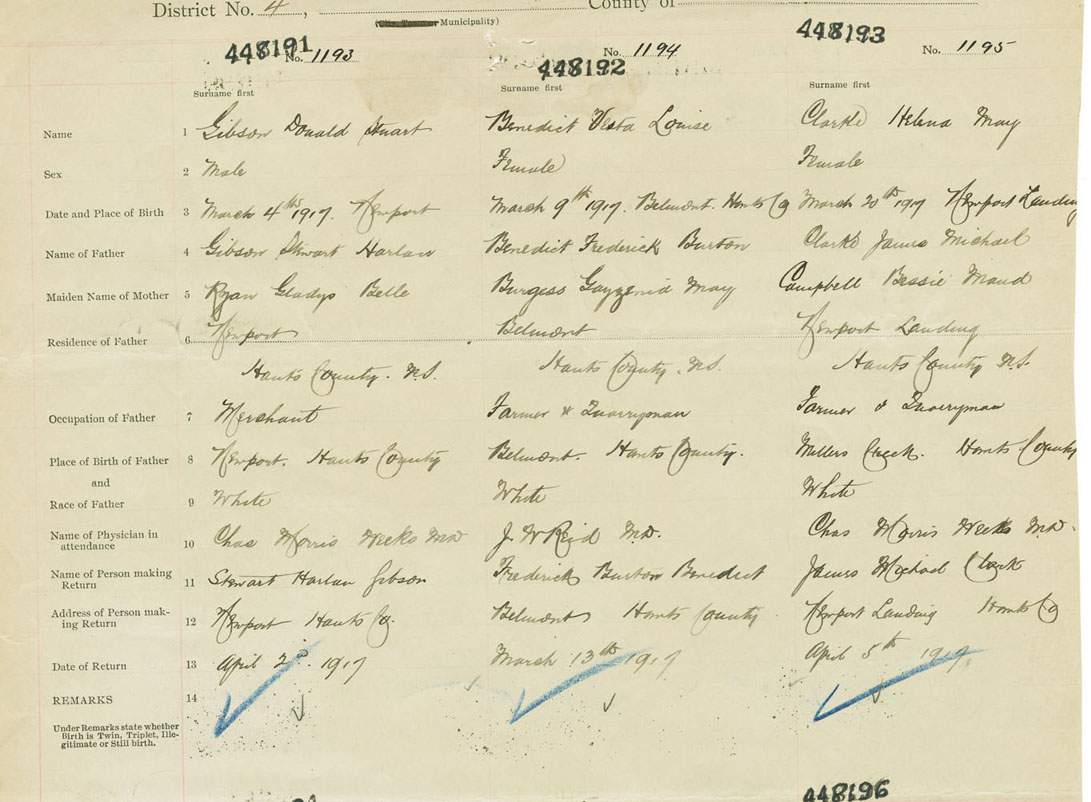 District No. 4, County of
Municipality)
448191 No. 1193 448192 No. 1194 448193 No. 1195
Surname first Surname first Surname first
Name 1 Gibson Donald Stuart Benedict Vesta Louise Clarke Helena May
Sex 2 Male Female Female
Date and Place of Birth 3 March 4th 1917. Newport March 9th 1917. Belmont Hants Co March 20th 1917 Newport Landing
Name of Father 4 Gibson Stewart Harlan Benedict Frederick Burton Clarke James Michael
Maiden Name of Mother 5 Ryan Gladys Belle Burgess May Campbell Bessie Maud
Residence of Father 6 Newport Belmont Newport Landing
Hants County. N.S. Hants County. N.S. Hants County N.S.
Occupation of Father 7 Merchant Farmer & Quarryman Farmer & Quarryman
Place of Birth of Father 8 Newport. Hants County Belmont. Hants County. Millers Creek. Hants County
and
Race of Father 9 White White White
Name of Physician in
attendance 10 Chas Morris Weeks MD J. W Reid MD. Chas Morris Weeks MD.
Name of Person making
Return 11 Stewart Harlan Gibson Frederick Burton Benedict James Michael Clark
Address of Person mak-
ing Return 12 Newport Hants Co. Belmont Hants County Newport Landing Hants Co
Date of Return 13 April 2nd. 1917 March 13th 1917 April 5th 1917.
REMARKS 14
Under Remarks state whether
Birth is Twin, Triplet, Ille-
gitimate or Still birth.
448196